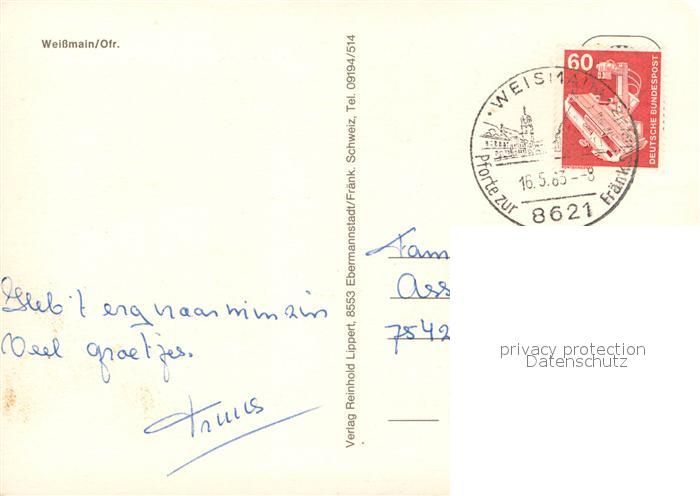 Weißmain/Ofr.
60
DEUTSCHE BUNDESPOST
WEISMAIN
16.5.83--8
Pforte zur Fränk.
8621
Verlag Reinhold Lippert, 8553 Ebermannstadt/Fränk. Schweiz, Tel. 09194/514
Fam
Ass
7542
Heb 't erg naar m'n zin
Veel groetjes.
Truus
privacy protection
Datenschutz